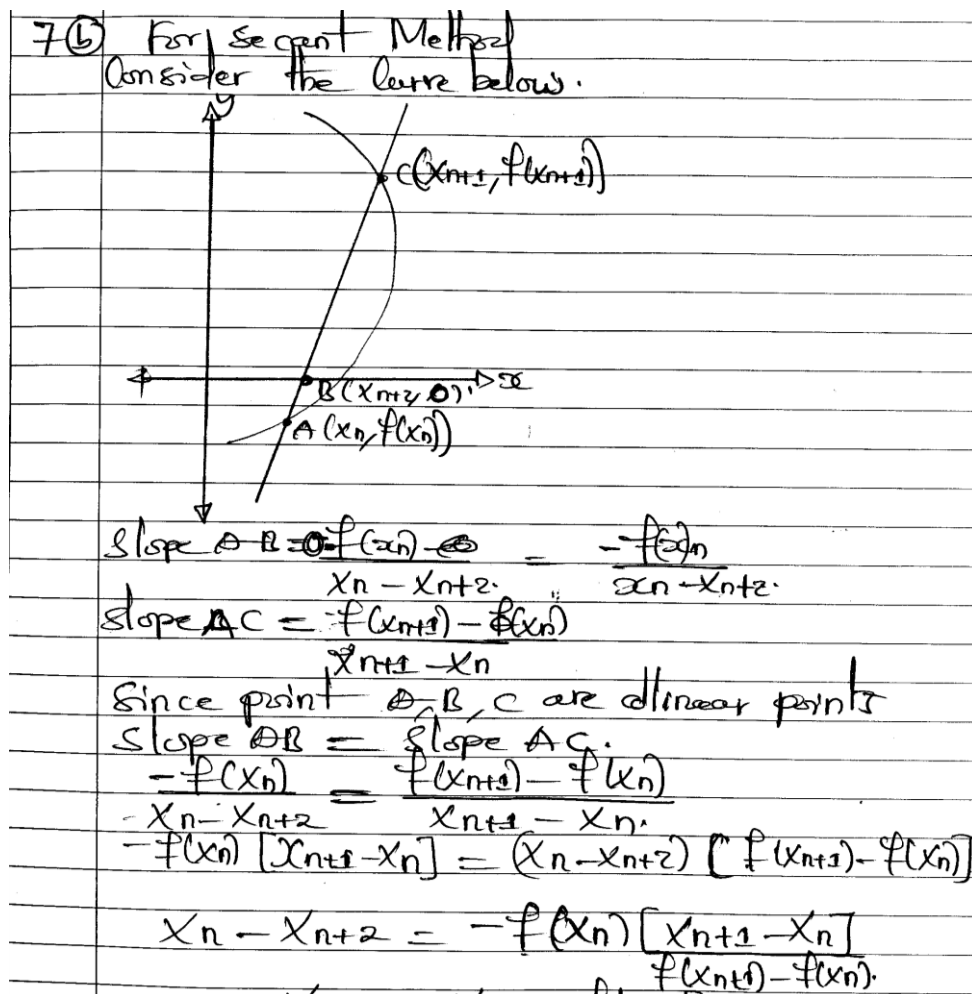 7(b) For Secant Method
Consider the curve below.
y
C(xn+1, f(xn+1))
x
B(xn+2, 0)
A(xn, f(xn))
Slope AB = 0-f(xn) / xn - xn+2. = -f(x)n / xn - xn+2.
Slope AC = f(xn+1) - f(xn) / xn+1 - xn
Since point A, B, C are collinear points
Slope AB = Slope AC.
-f(xn) / xn - xn+2 = f(xn+1) - f(xn) / xn+1 - xn.
-f(xn) [xn+1 - xn] = (xn - xn+2) [f(xn+1) - f(xn)]
xn - xn+2 = -f(xn) [xn+1 - xn] / f(xn+1) - f(xn).